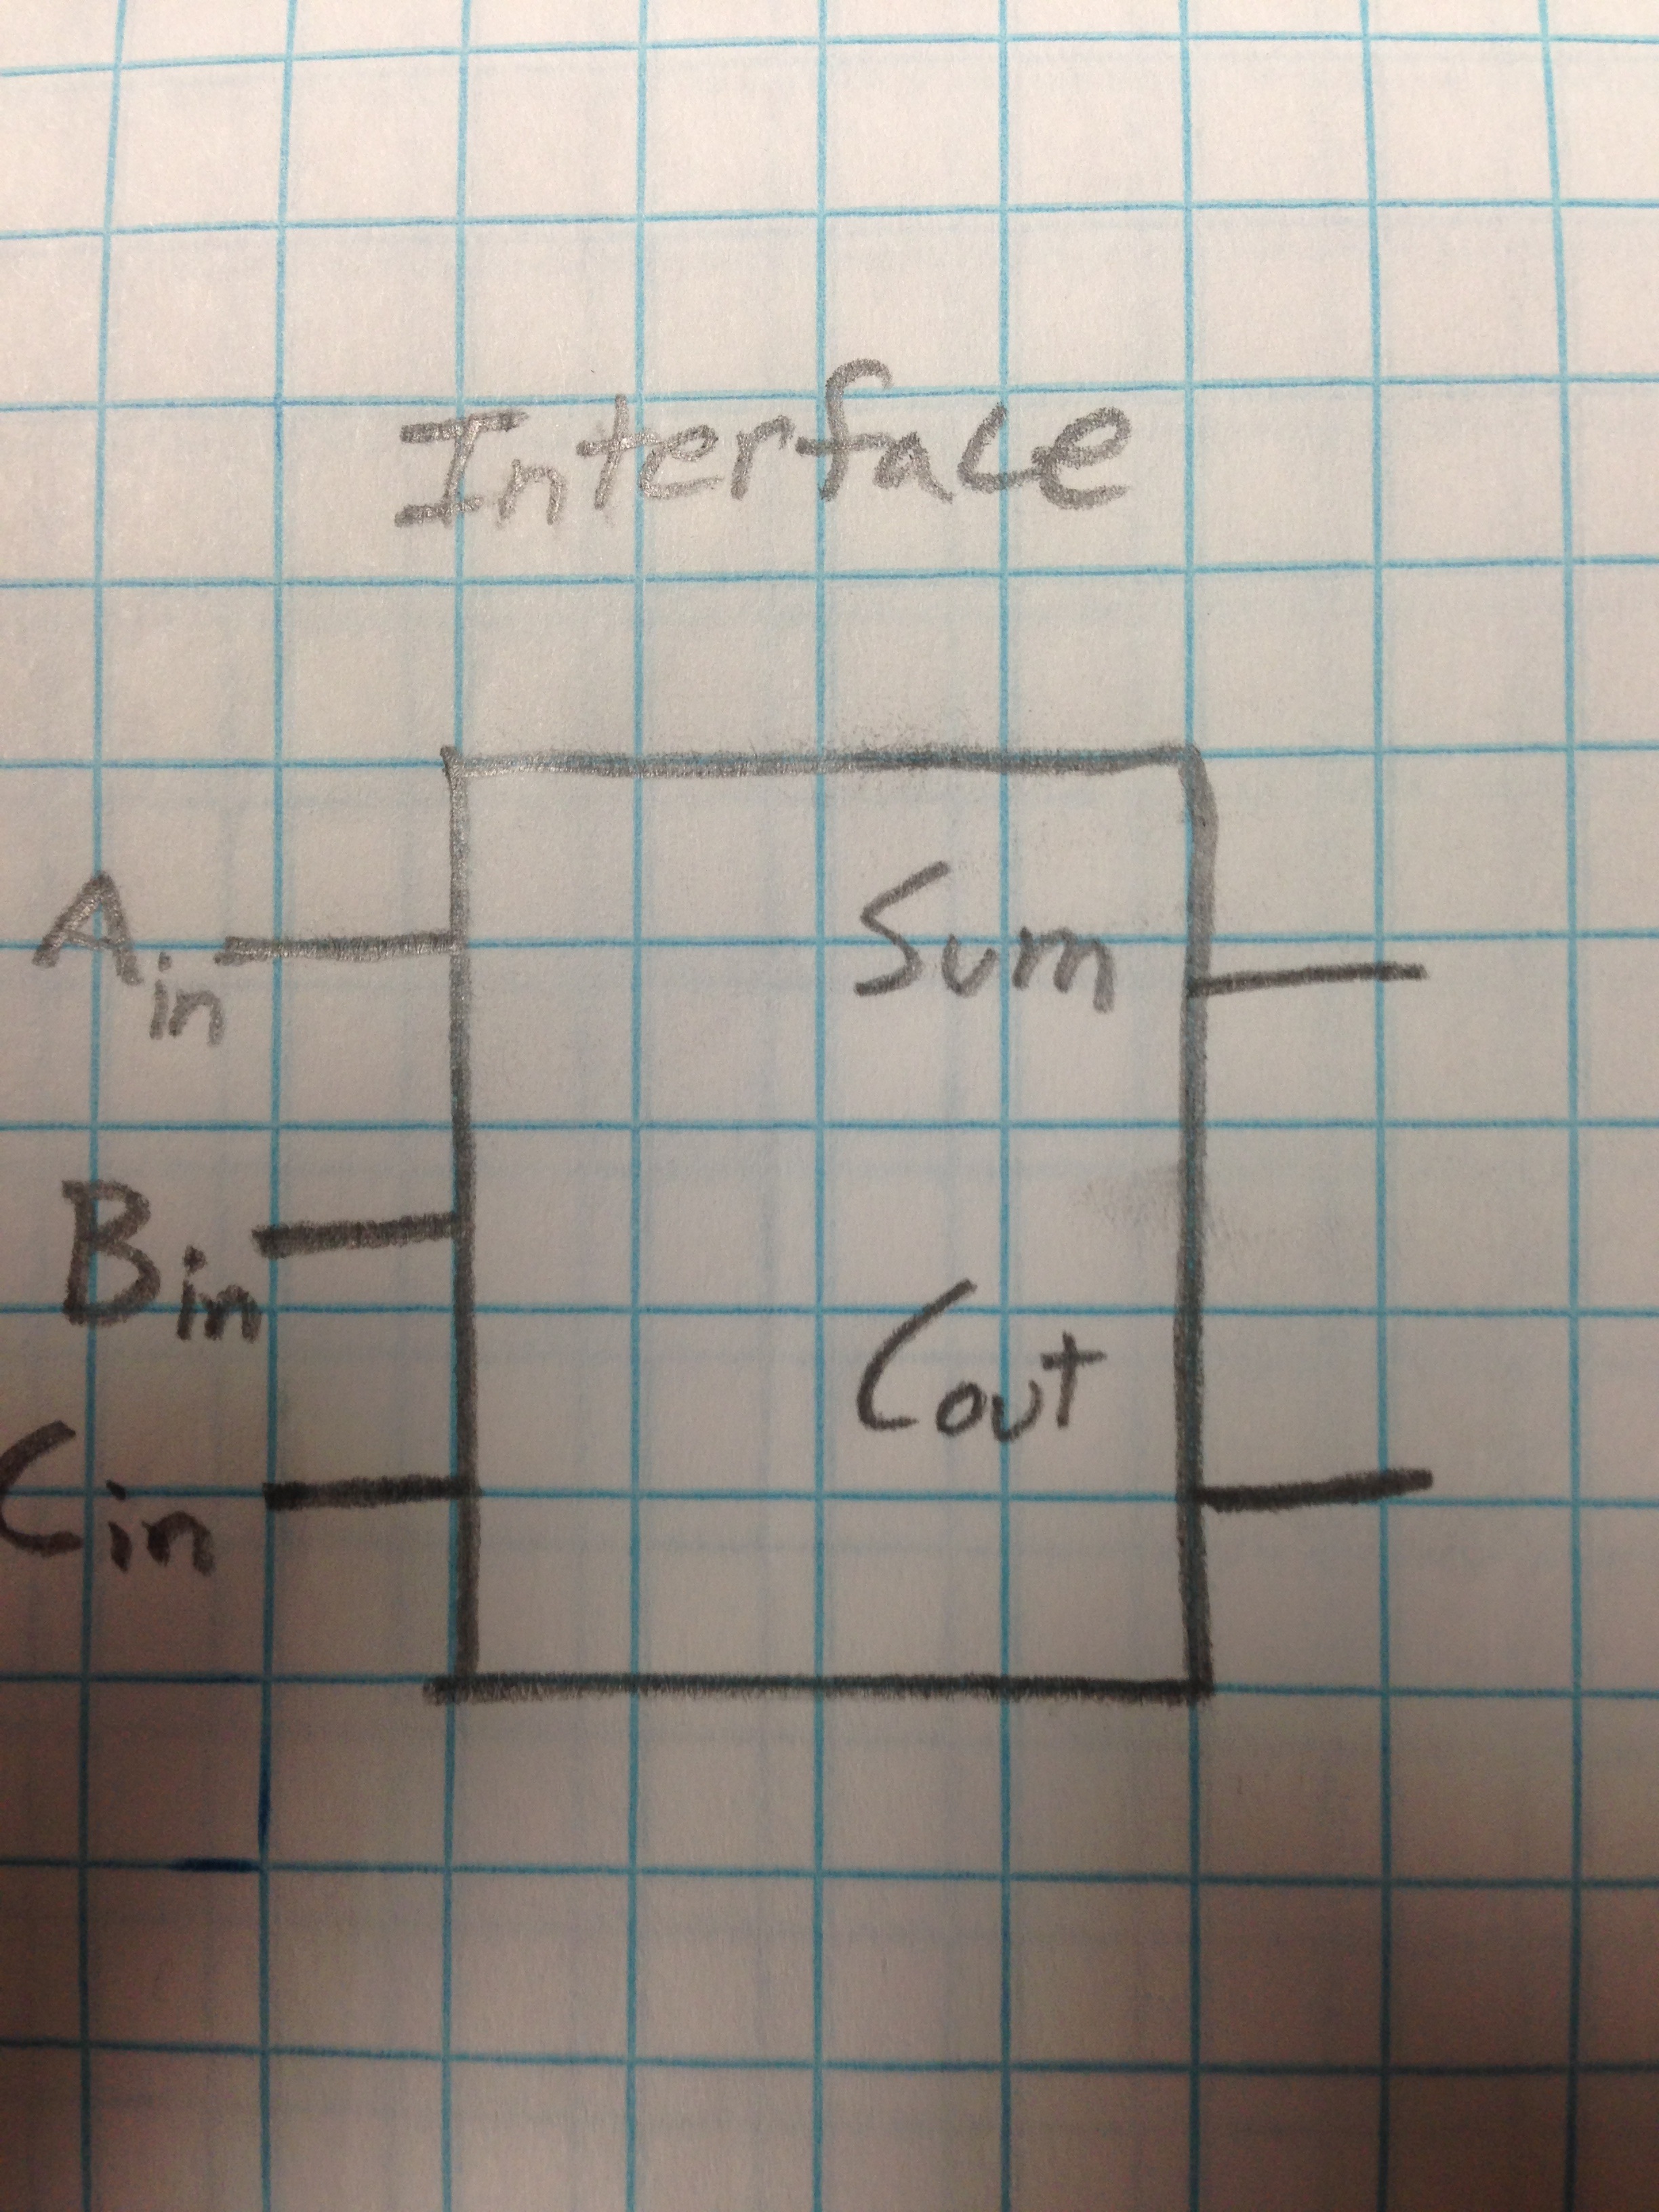 Interface
Ain
Bin
Cin
Sum
Cout